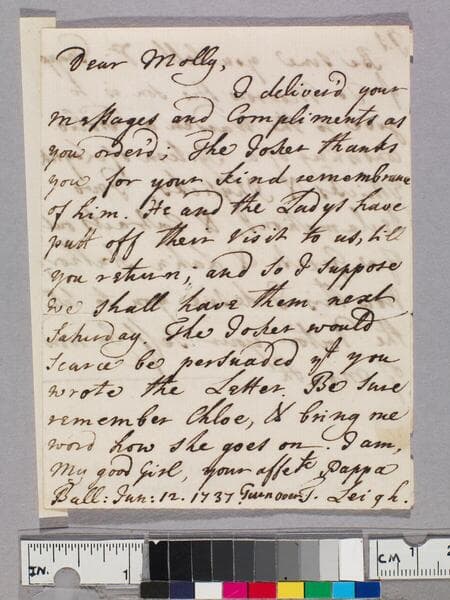 Dear Molly,
I deliver'd your
messages and Compliments as
you order'd; The Joker thanks
you for your kind remembrance
of him. He and the Ladys have
putt off their Visit to us, till
you return; and so I suppose
we shall have them next
Saturday. The Joker would
scarce be persuaded yt you
wrote the Letter. Be sure
remember Chloe, & bring me
word how she goes on. I am,
My good Girl, your affte Pappa
Ball: Jun: 12. 1737. T. Leigh.
IN. 1
CM 1 2